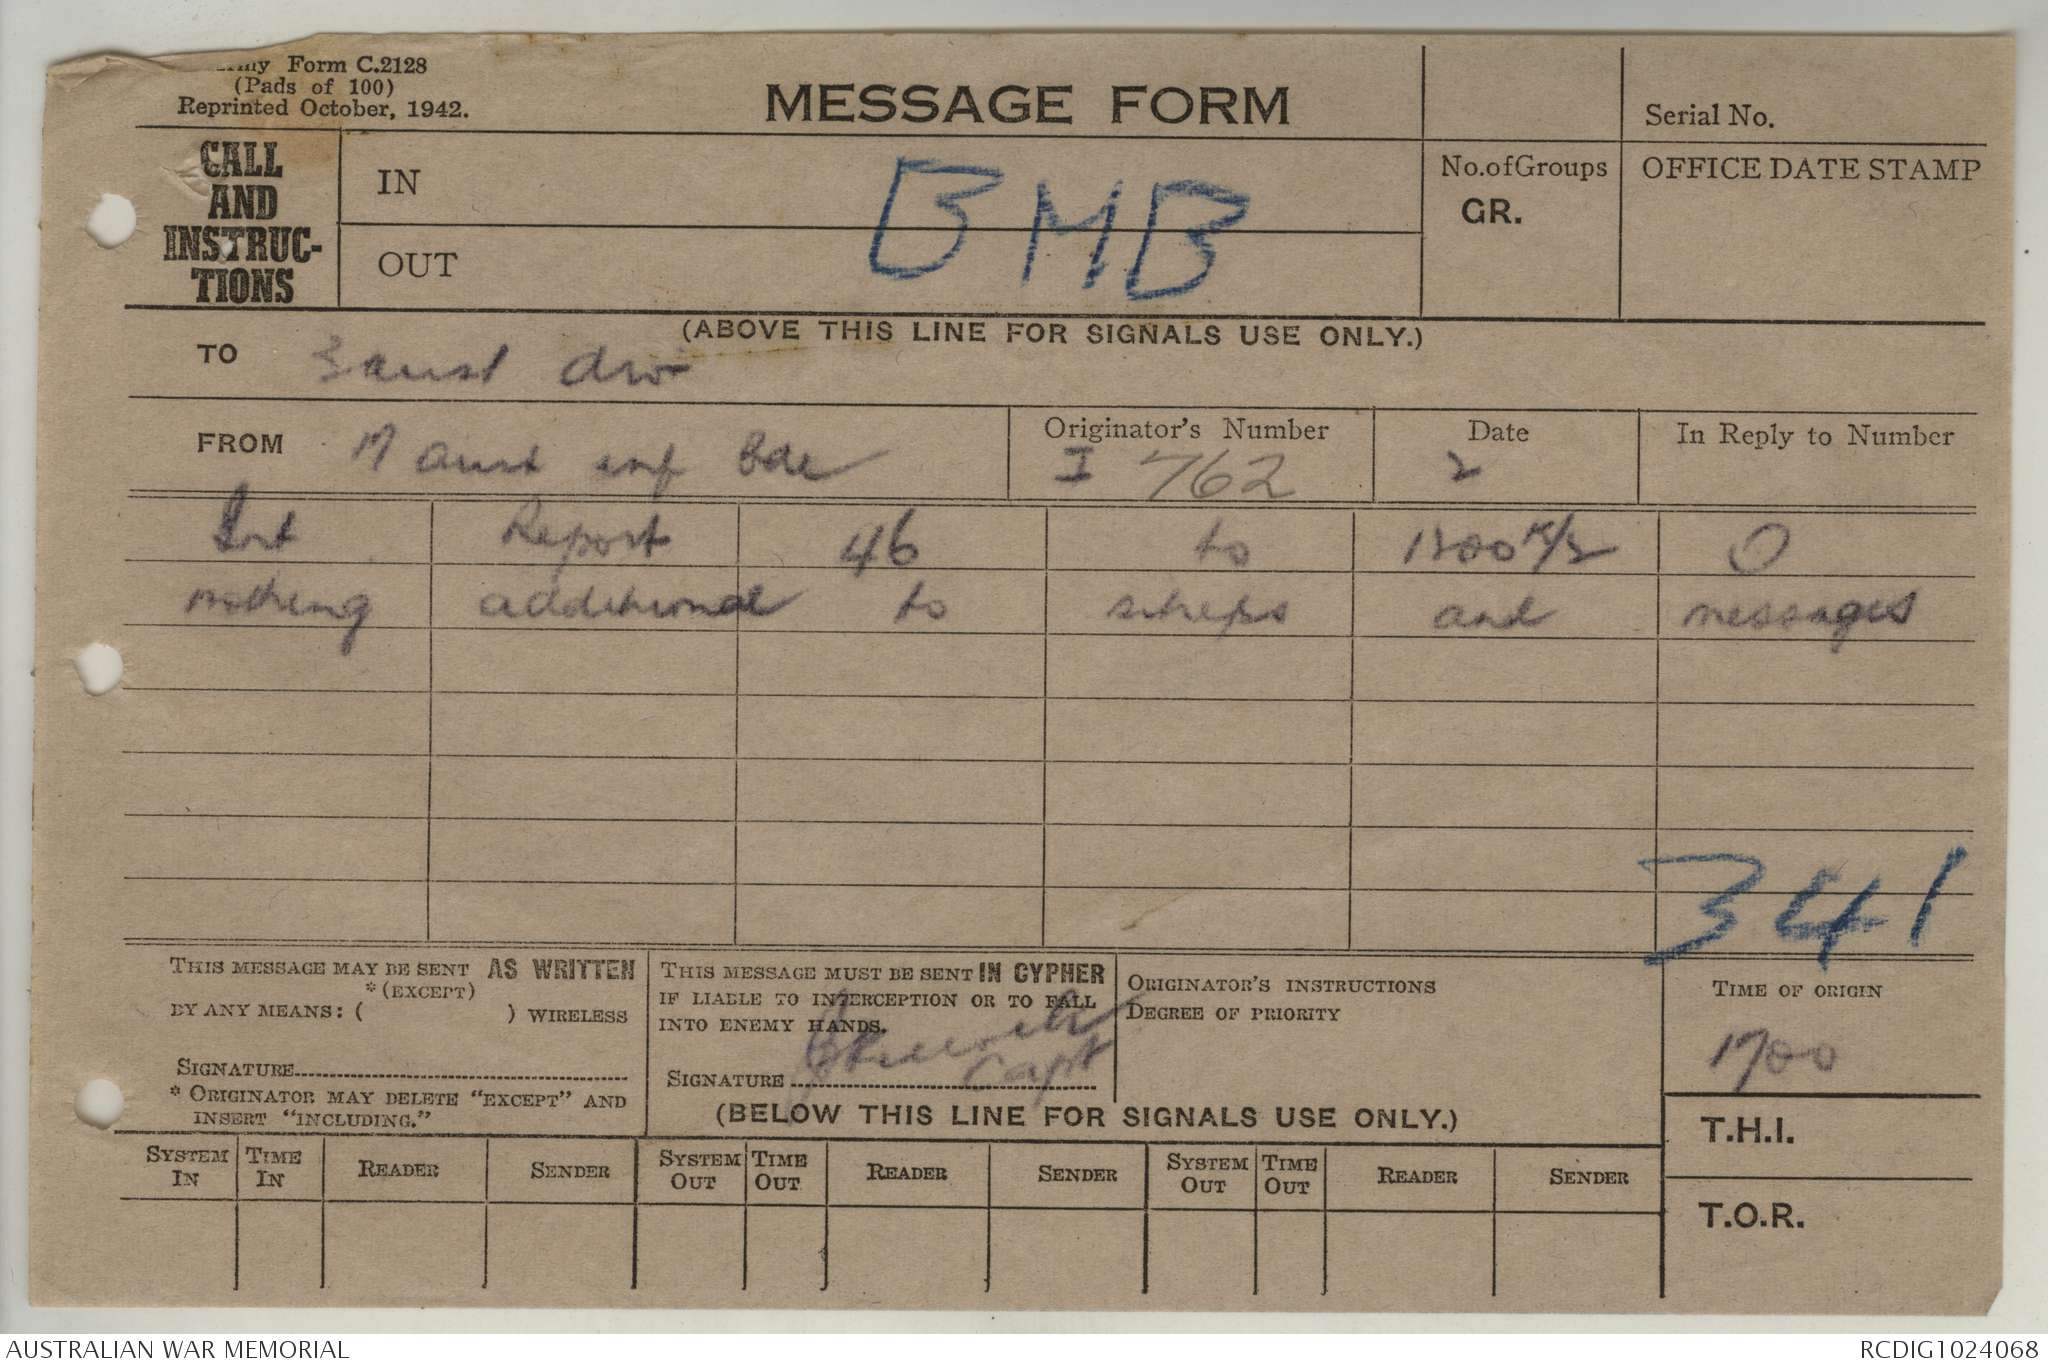 Army Form C.2128
(Pads of 100)
Reprinted October, 1942.
MESSAGE FORM
Serial No.
CALL
AND
INSTRUC-
TIONS
IN
OUT
BMB
No. of Groups
GR.
OFFICE DATE STAMP
(ABOVE THIS LINE FOR SIGNALS USE ONLY.)
TO 3 aust div
FROM 17 aust inf Bde
Originator's Number
I 762
Date
2
In Reply to Number
Int Report 46 to O
nothing additional to sitreps and messages
341
THIS MESSAGE MAY BE SENT AS WRITTEN
*(EXCEPT)
BY ANY MEANS: ( ) WIRELESS
SIGNATURE
* ORIGINATOR MAY DELETE "EXCEPT" AND
INSERT "INCLUDING."
THIS MESSAGE MUST BE SENT IN CYPHER
IF LIABLE TO INTERCEPTION OR TO FALL
INTO ENEMY HANDS.
SIGNATURE Capt
ORIGINATOR'S INSTRUCTIONS
DEGREE OF PRIORITY
TIME OF ORIGIN
1700
(BELOW THIS LINE FOR SIGNALS USE ONLY.)
T.H.I.
T.O.R.
SYSTEM IN TIME IN READER SENDER SYSTEM OUT TIME OUT READER SENDER SYSTEM OUT TIME OUT READER SENDER
AUSTRALIAN WAR MEMORIAL
RCDIG1024068